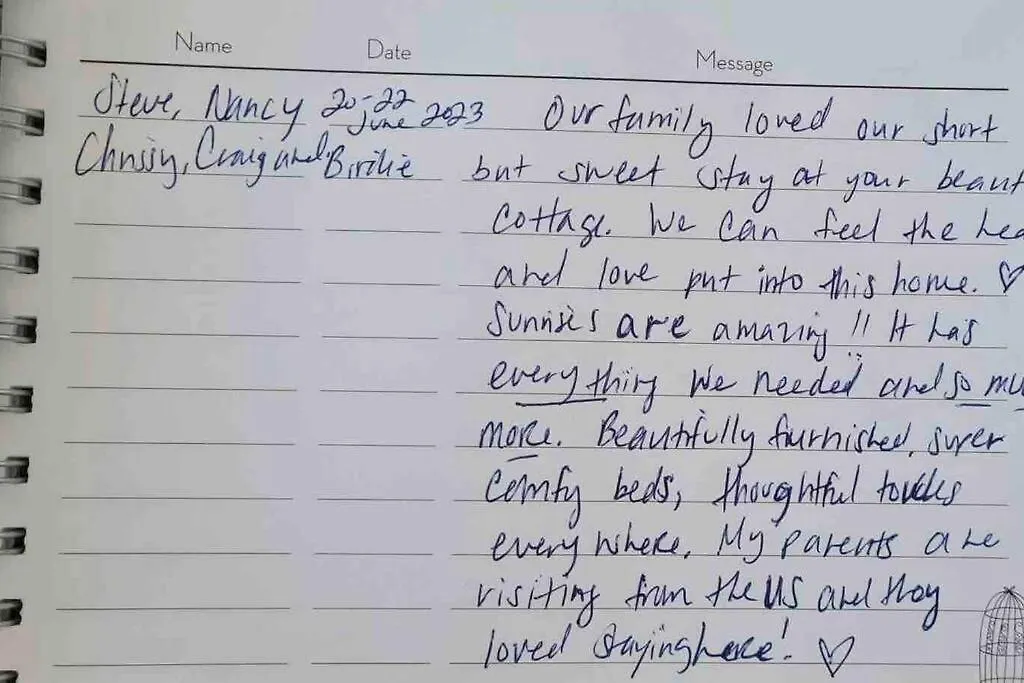 Name Date Message
Steve, Nancy 20-22 June 2023 Our family loved our short
Chrissy, Craig and Birdie but sweet stay at your beaut
cottage. We can feel the hea
and love put into this home. ♡
Sunrises are amazing!! It has
everything we needed and so mu
more. Beautifully furnished, super
comfy beds, thoughtful touches
everywhere. My parents are
visiting from the US and they
loved staying here! ♡